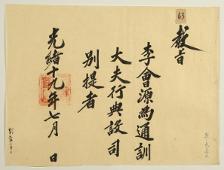 敎旨
李會源爲通訓
大夫行典設司
別提者
光緖十九年七月 日